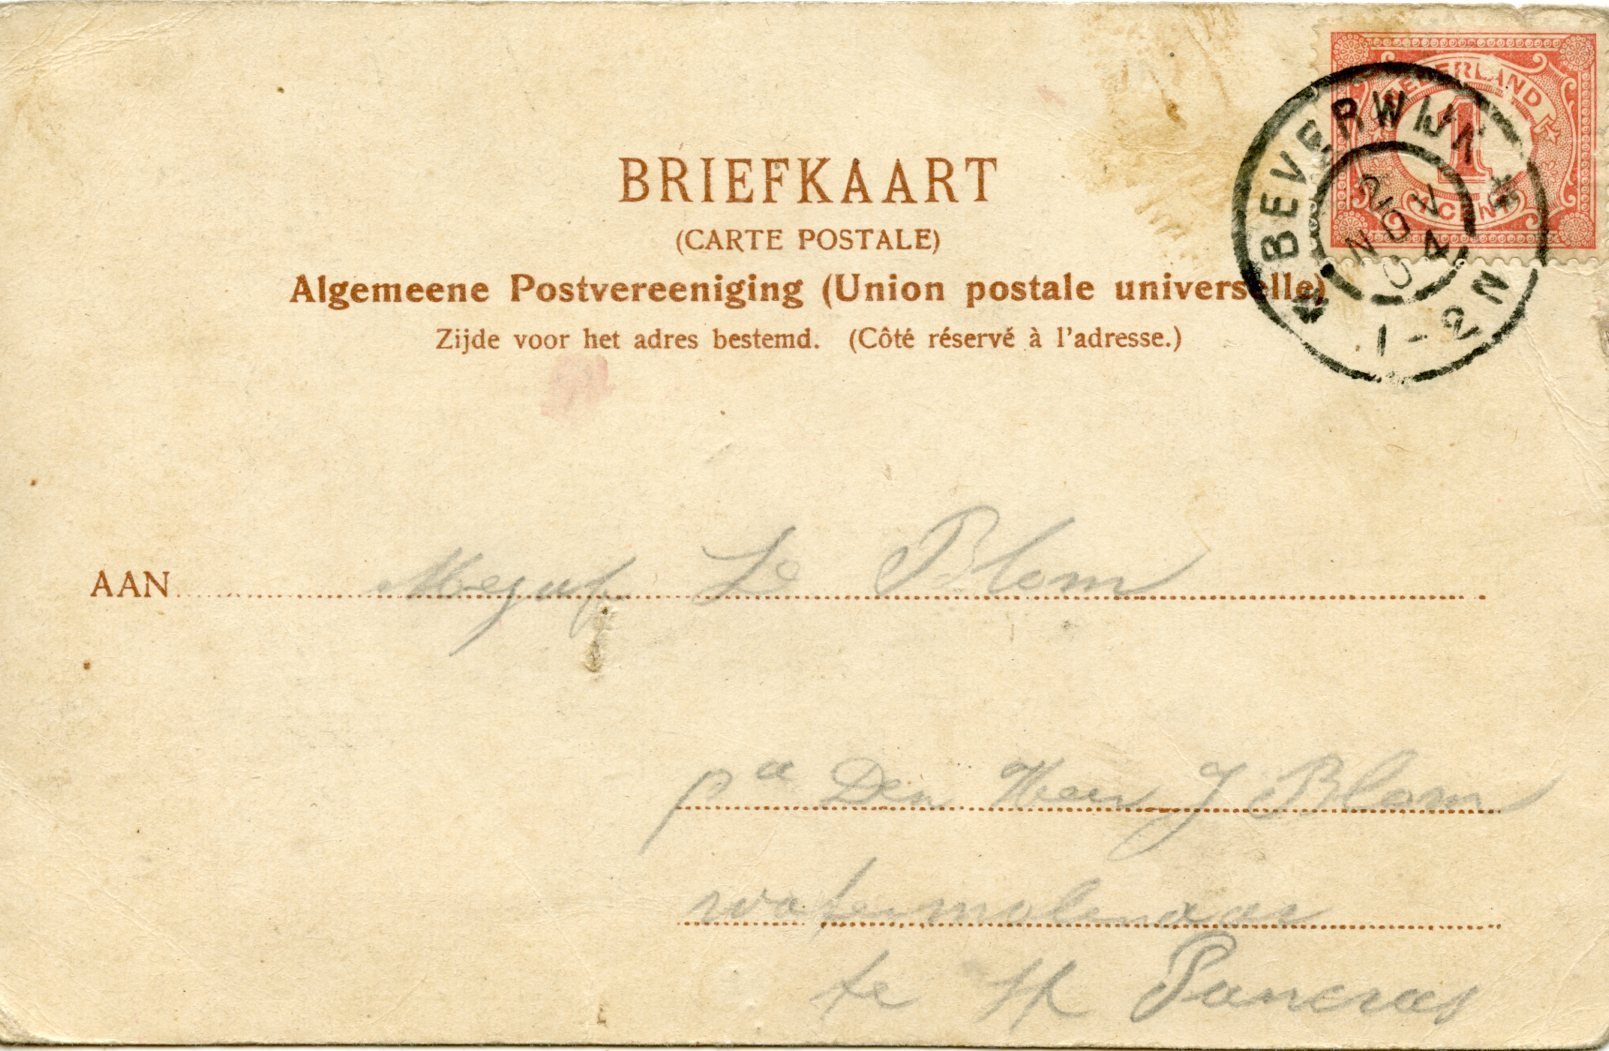 NEDERLAND
1
CENT
BEVERWIJK
2 NOV
04
1-2N
BRIEFKAART
(CARTE POSTALE)
Algemeene Postvereeniging (Union postale universelle)
Zijde voor het adres bestemd. (Côté réservé à l'adresse.)
AAN Mejuf Blom
pa Den Heer J Blom
watermolenaar
te St Pancras